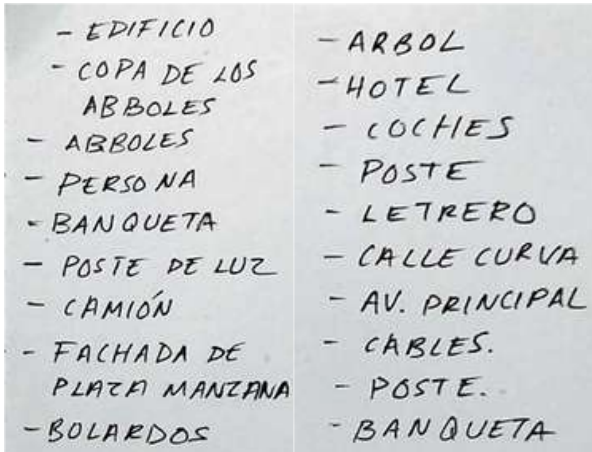 - EDIFICIO
- COPA DE LOS
ABBOLES
- ABBOLES
- PERSONA
- BANQUETA
- POSTE DE LUZ
- CAMIÓN
- FACHADA DE
PLAZA MANZANA
- BOLARDOS
- ARBOL
- HOTEL
- COCHES
- POSTE
- LETRERO
- CALLE CURVA
- AV. PRINCIPAL
- CABLES.
- POSTE.
- BANQUETA